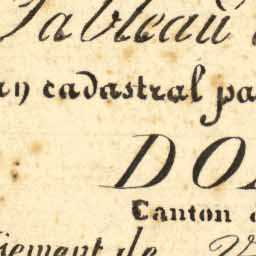 Tableau
cadastral pa
DO
Canton
de